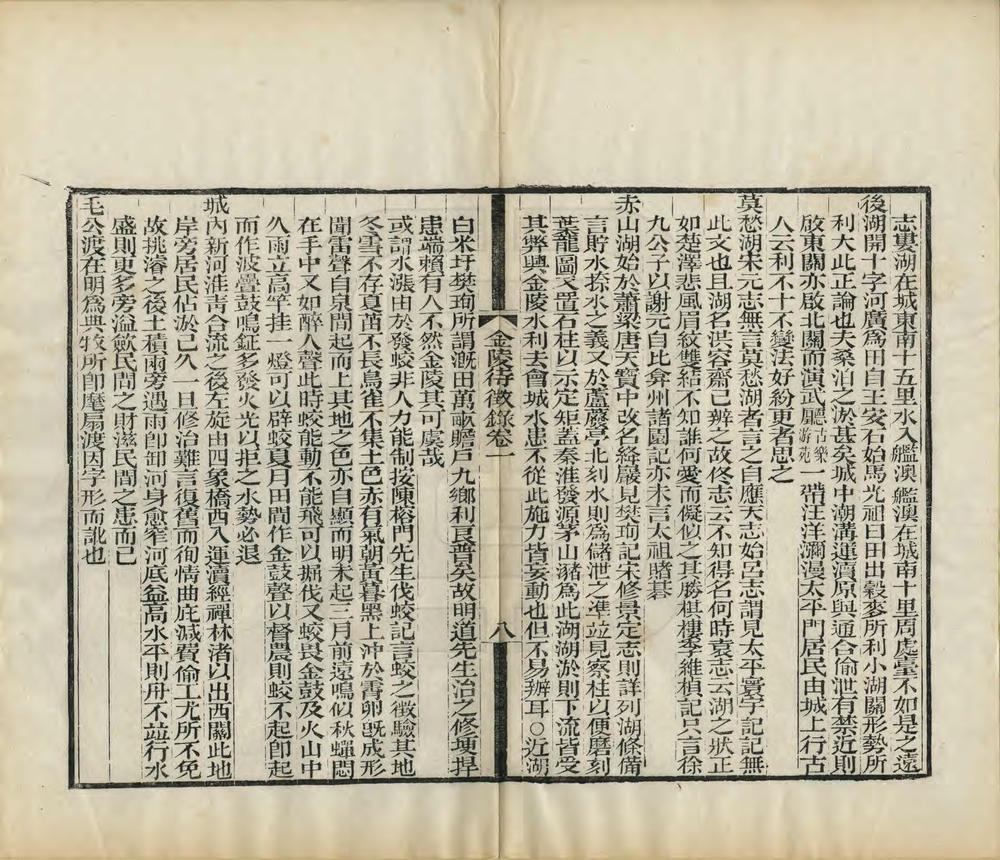 志裏湖在城東南十五里水入艦澳艦澳在城南十里周處臺不如是之遠
後湖開十字河廣爲田自王安石始馬光祖曰田出穀麥所利小湖關形勢所
利大此正論也夫桑泊之淤甚矣城中潮溝運瀆原與通合偷泄有禁近則
啟東關亦啟北關而演武廳古樂游苑一帶汪洋瀰漫太平門居民由城上行古
人云利不十不變法好紛更者思之
莫愁湖宋元志無言莫愁湖者言之自應天志始呂志謂見太平寰宇記記無
此文也且湖名洪容齋己辨之故佟志云不知得名何時袁志云湖之狀正
如楚澤悲風眉紋雙結不知誰何愛而儗似之其勝棋樓李維楨記只言徐
九公子以謝元自比弇州諸園記亦未言太祖賭棊
赤山湖始於蕭梁唐天寶中改名絳巖見樊珣記宋修景定志則詳列湖條備
言貯水捺水之義又於蘆藶亭北刻水則爲儲泄之準並見察柱以便磨刻
葉龍圖又置石柱以示定矩蓋秦淮發源茅山豬爲此湖湖淤則下流皆受
其弊興金陵水利去會城水患不從此施力皆妄動也但不易辦耳○近湖
金陵待徵錄卷一
八
白米圩樊珣所謂溉田萬畝贍戶九鄉利良普矣故明道先生治之修埂捍
患端賴有人不然金陵其可虞哉
或謂水漲由於發蛟非人力能制按陳榕門先生伐蛟記言蛟之徵驗其地
冬雪不存夏苗不長鳥雀不集土色赤有氣朝黃暮黑上沖於霄卵既成形
聞雷聲自泉間起而上其地之色亦自顯而明未起三月前遠鳴似秋蟬悶
在手中又如醉人聲此時蛟能動不能飛可以掘伐又蛟畏金鼓及火山中
久雨立高竿挂一燈可以辟蛟夏月田間作金鼓聲以督農則蛟不起卽起
而作波疊鼓鳴鉦多發火光以拒之水勢必退
城內新河淮青合流之後左旋由四象橋西入運瀆經禪林渚以出西關此地
岸旁居民佔淤己久一旦修治難言復舊而徇情曲庇減費偷工尤所不免
故挑濬之後土積兩旁遇雨卽卸河身愈窄河底益高水平則舟不並行水
盛則更多旁溢歛民間之財滋民間之患而己
毛公渡在明爲典牧所卽麾扇渡因字形而訛也